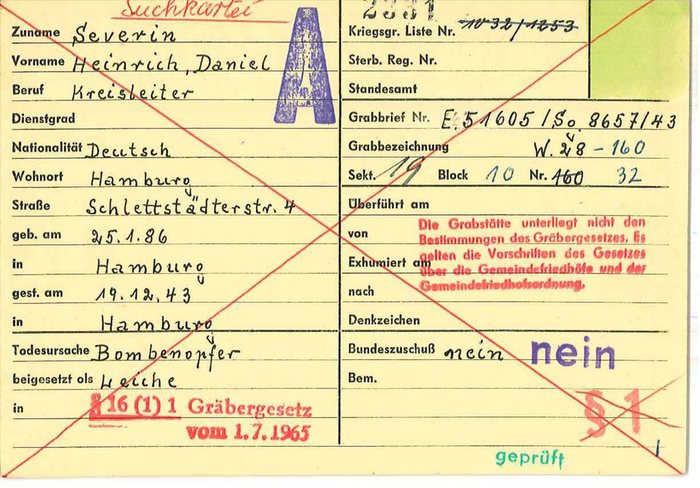 Suchkartei
Zuname Severin
Vorname Heinrich, Daniel
Beruf Kreisleiter
Dienstgrad
Nationalität Deutsch
Wohnort Hamburg
Straße Schlettstädterstr. 4
geb. am 25.1.86
in Hamburg
gest. am 19.12.43
in Hamburg
Todesursache Bombenopfer
beigesetzt als Leiche
in
§ 16 (1) 1 Gräbergesetz
vom 1.7.1965
A
2331
Kriegsgr. Liste Nr. 1032/1253
Sterb. Reg. Nr.
Standesamt
Grabbrief Nr. E. 51605/So 8657/43
Grabbezeichnung W. 28 - 160
Sekt. 19 Block 10 Nr. 160 32
Überführt am
von
Exhumiert am
nach
Die Grabstätte unterliegt nicht den
Bestimmungen des Gräbergesetzes. Es
gelten die Vorschriften des Gesetzes
über die Gemeindefriedhöfe und der
Gemeindefriedhofsordnung.
Denkzeichen
Bundeszuschuß nein nein
Bem.
§ 1
geprüft